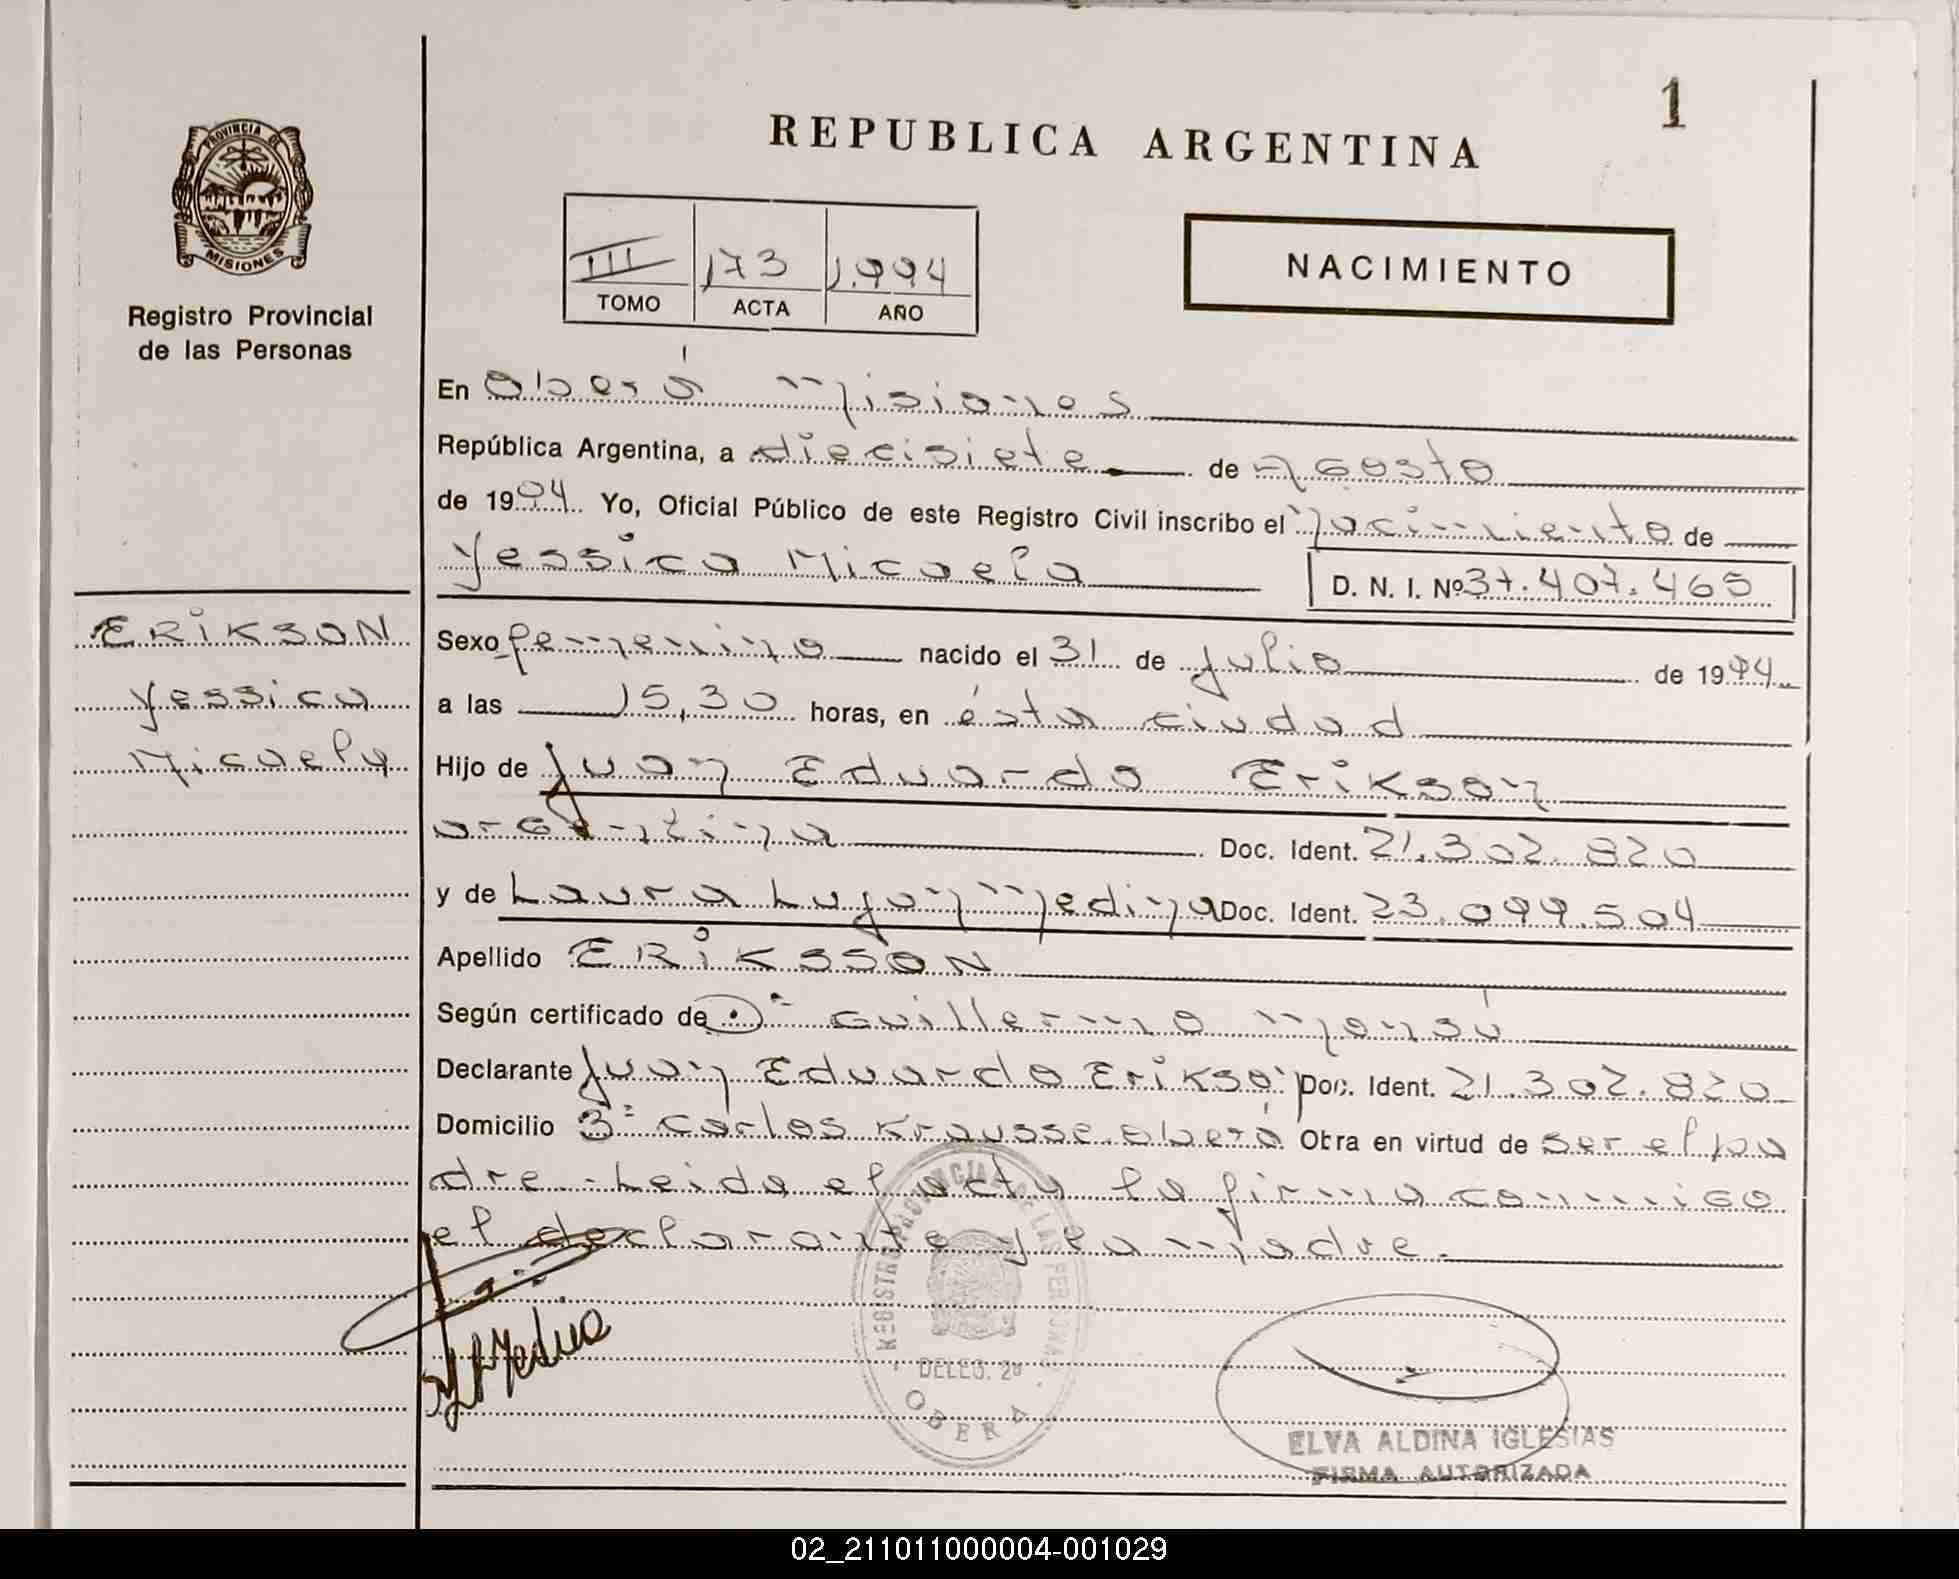 1
REPUBLICA ARGENTINA
PROVINCIA DE
MISIONES
Registro Provincial
de las Personas
III 173 1.994
TOMO ACTA AÑO
NACIMIENTO
En Oberá Misiones
República Argentina, a diecisiete de Agosto
de 1994 Yo, Oficial Público de este Registro Civil inscribo el Nacimiento de
Yessica Micaela D. N. I. Nº 37.407.465
ERIKSON
Yessica
Micaela
Sexo femenino nacido el 31 de julio de 1994
a las 15,30 horas, en ésta ciudad
Hijo de Juan Eduardo Erikson
argentina Doc. Ident. 21.302.820
y de Laura Lujan Medina Doc. Ident. 23.099.504
Apellido ERIKSSON
Según certificado de Dr Guillermo
Declarante Juan Eduardo Erikson Doc. Ident. 21.302.820
Domicilio Bº Carlos Krausse Oberá Obra en virtud de ser el pa
dre.- Leida el acta la firma conmigo
el declarante y la madre.
Medina
REGISTRO PROVINCIAL DE LAS PERSONAS
DELEG. 2ª
OBERA
ELVA ALDINA IGLESIAS
FIRMA AUTORIZADA
02_211011000004-001029